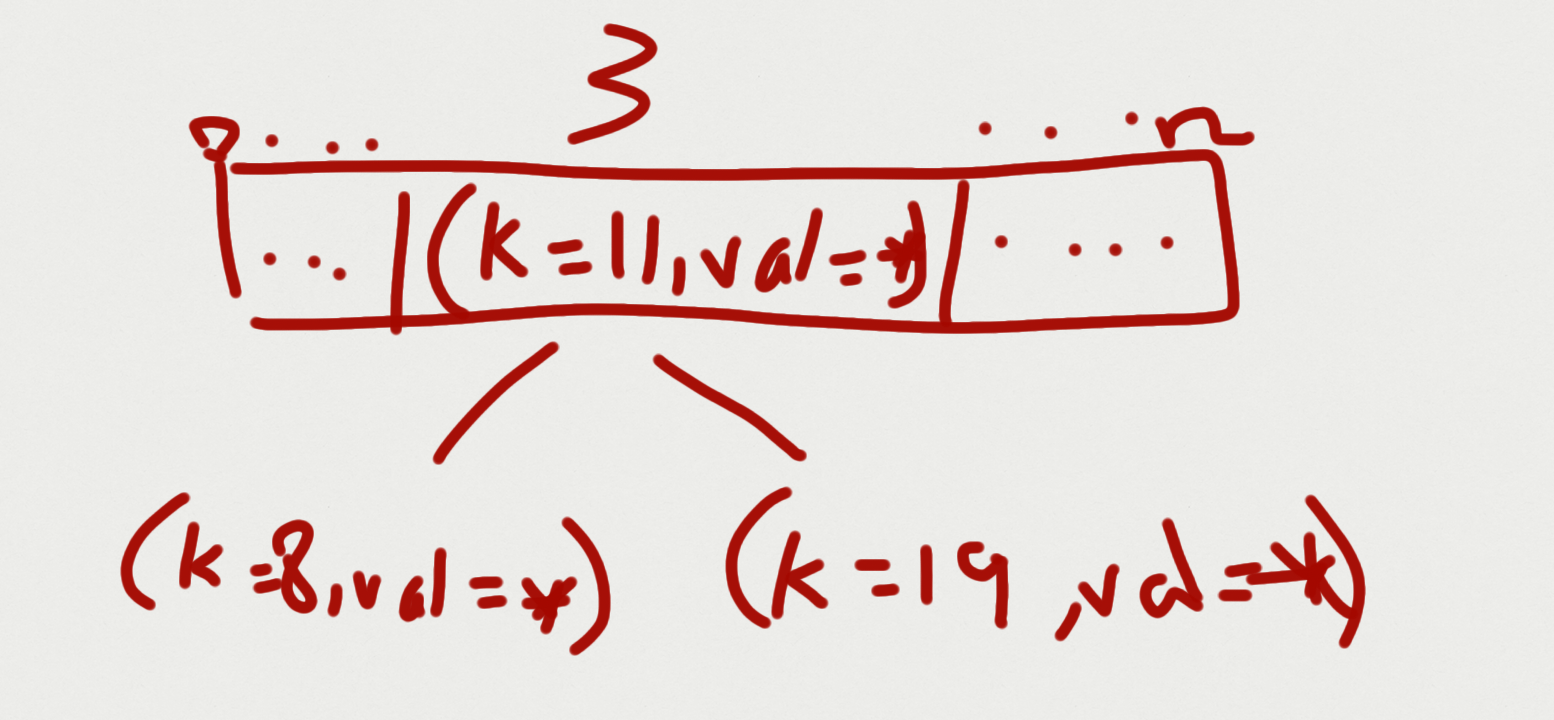 3
0 . . . . . . n
. . . (k=11, val=*) . . . .
(k=8, val=*) (k=19, val=*)